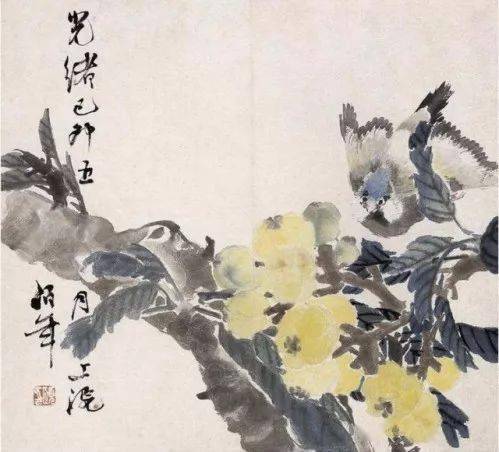 光緒己卯五
月上浣
伯年